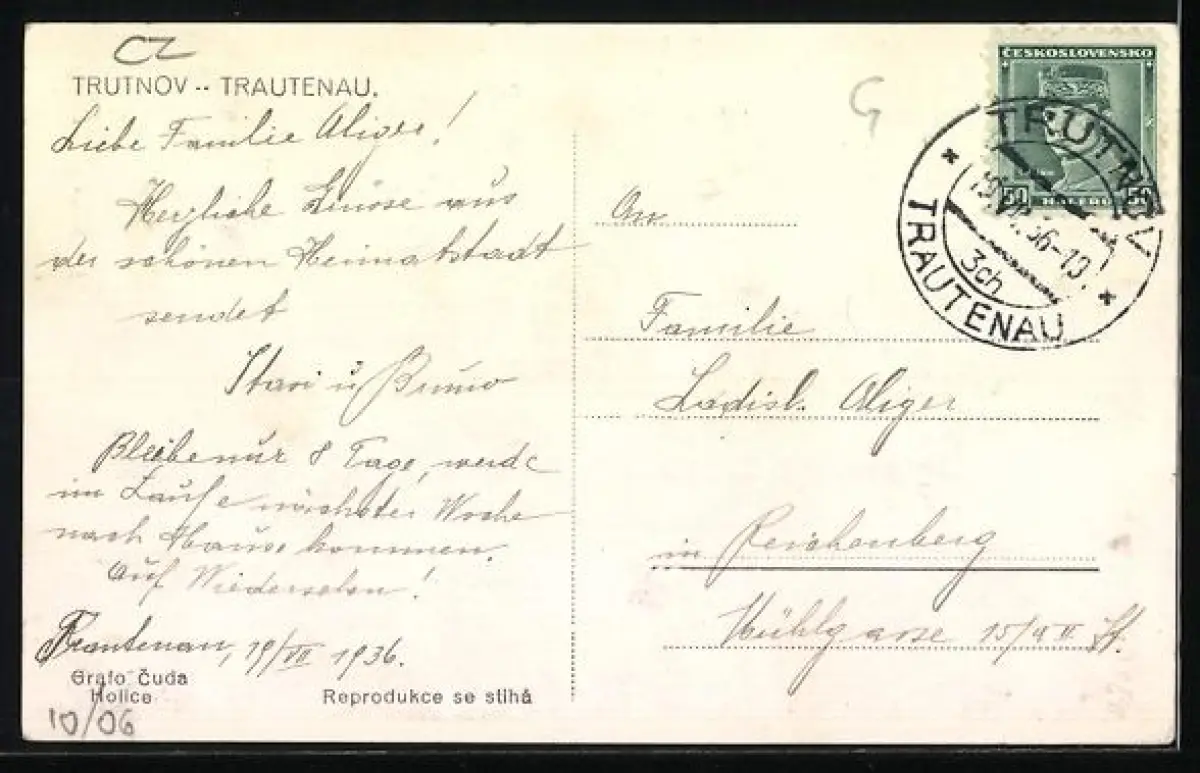 CZ
TRUTNOV -- TRAUTENAU.
Liebe Familie Aliger!
Herzliche Grüsse aus
der schönen Heimatstadt
sendet
u Bruno
Bleibe nur 8 Tage, werde
im Laufe nächster Woche
nach Hause kommen.
Auf Wiedersehen!
Trautenau, 19/VII 1936.
Grafo Čuda
Holice
Reprodukce se stihá
10/06
G
ČESKOSLOVENSKO
50 HALÉŘŮ 50
TRUTNOV
36-10.
3ch
TRAUTENAU
An
Familie
Ladisl. Aliger
in Reichenberg
Mühlgasse 15/